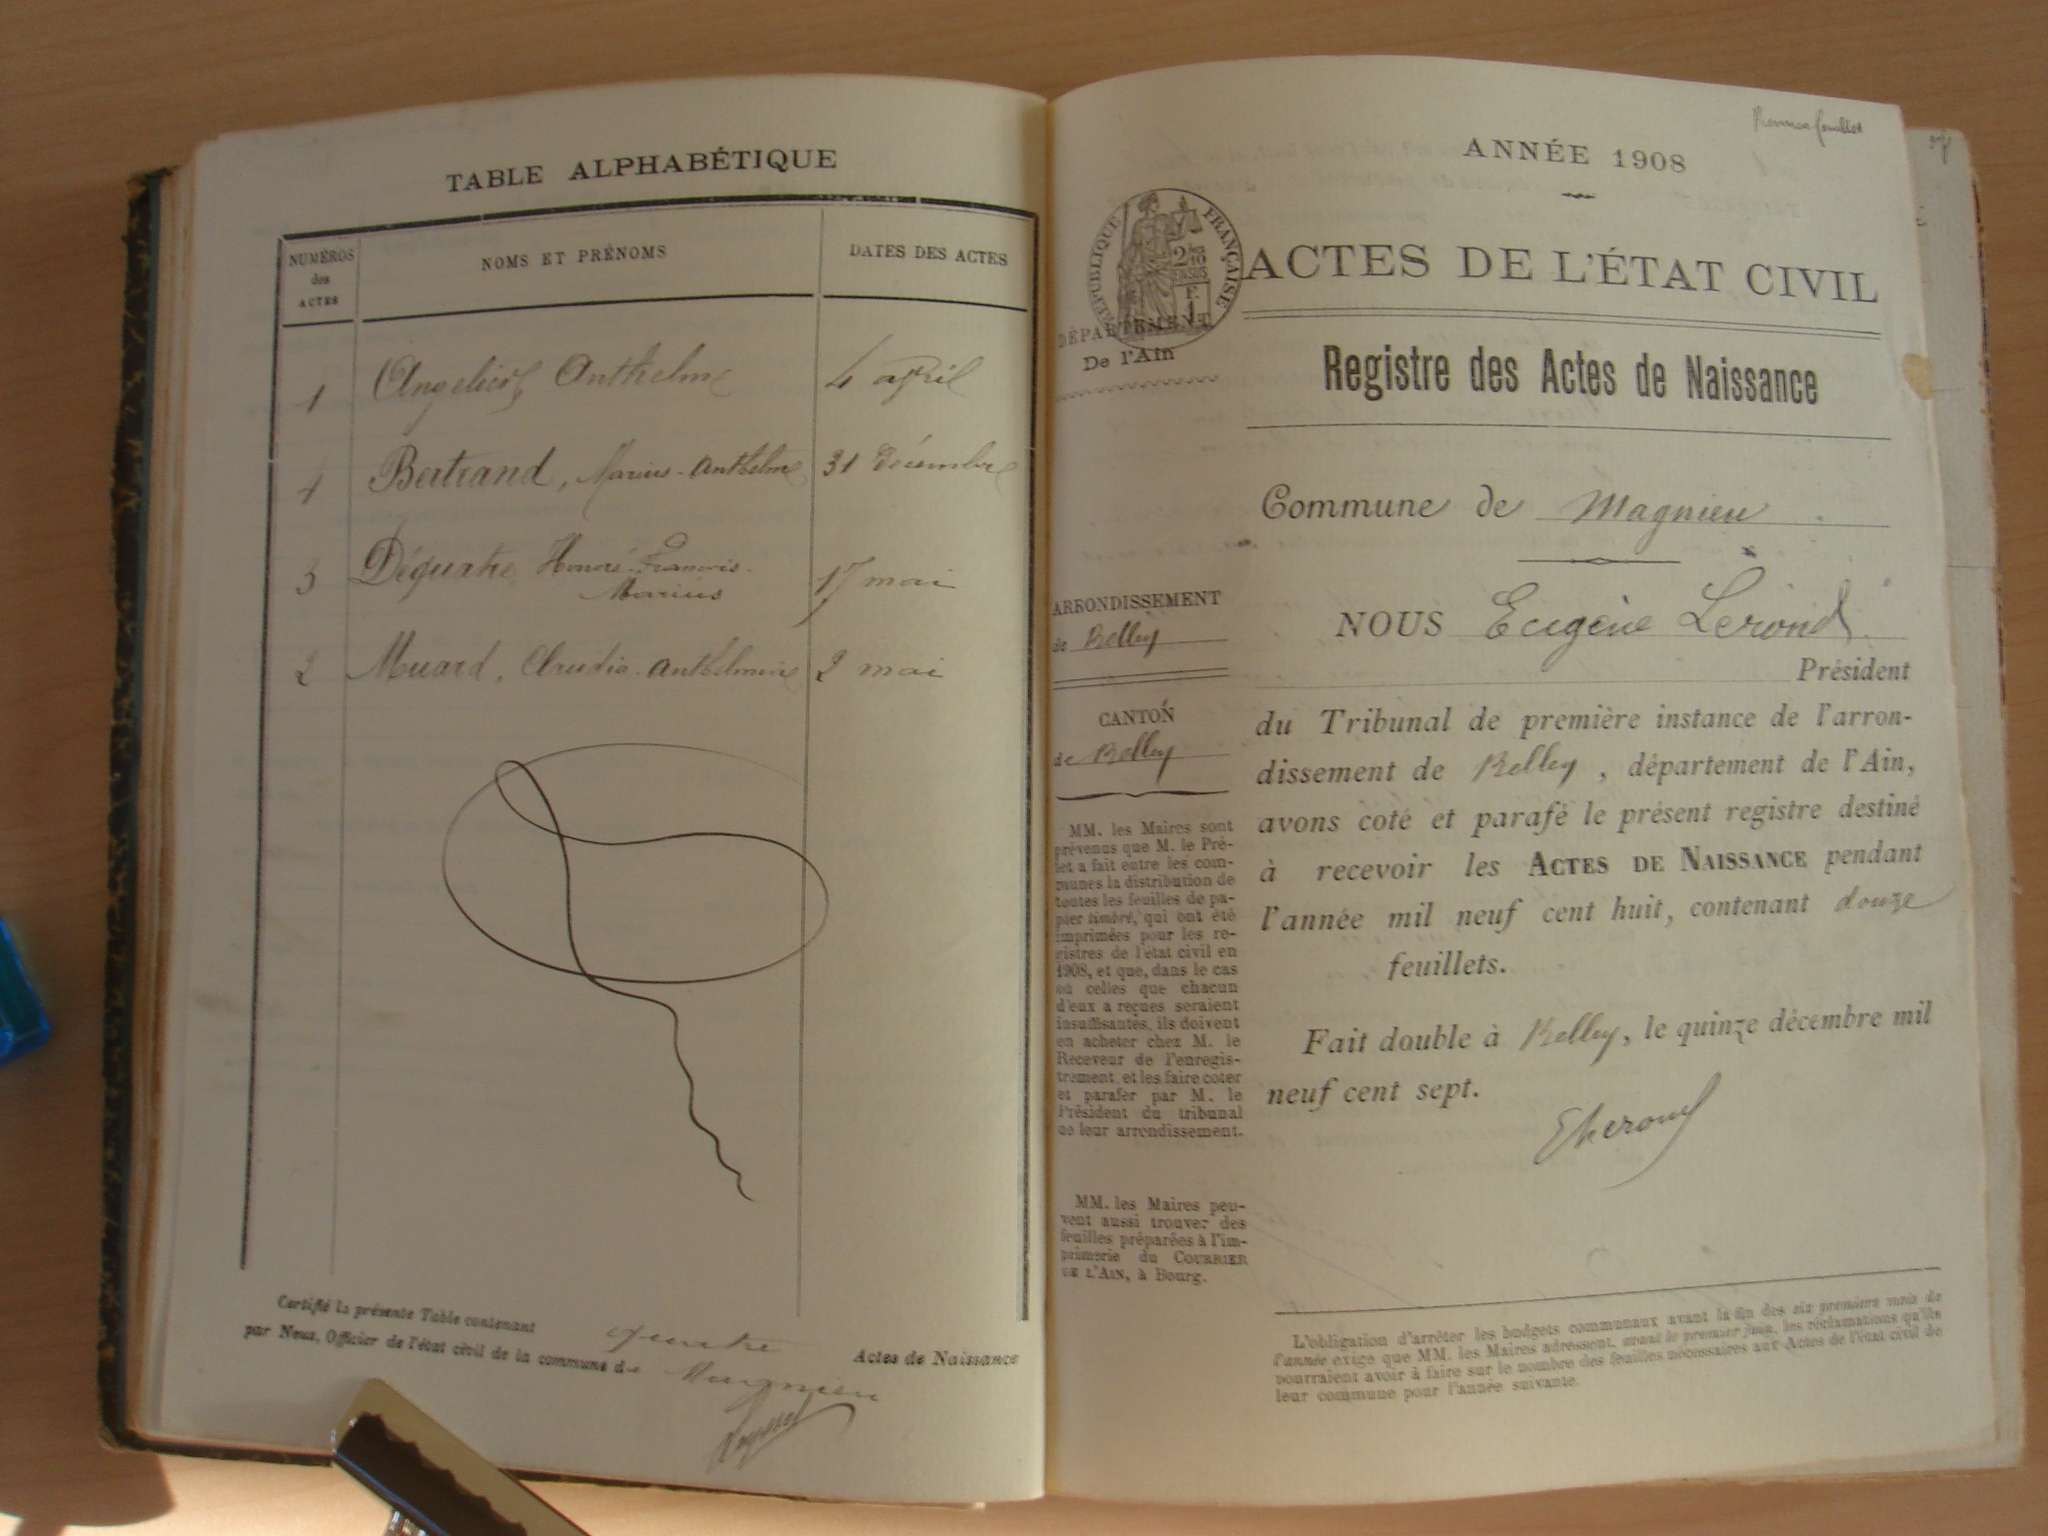 TABLE ALPHABÉTIQUE
NUMÉROS
des
ACTES
NOMS ET PRÉNOMS
DATES DES ACTES
1 Anthelme 4 april
4 Bertrand, Marius-Anthelme 31 Décembre
3 Déquatre Honoré-Francois-
Marius 17 mai
2 Muard, Claudia-Anthelmine 2 mai
Certifié la présente Table contenant quatre Actes de Naissance
par Nous, Officier de l'état civil de la commune de Magnieu
Premier feuillet
ANNÉE 1908
RÉPUBLIQUE FRANÇAISE
2/10
EN SUS
F.
1
ACTES DE L'ÉTAT CIVIL
DÉPARTEMENT
De l'Ain
Registre des Actes de Naissance
Commune de Magnieu
ARRONDISSEMENT
de Belley
NOUS Eugène Lérond
Président
CANTON
de Belley
du Tribunal de première instance de l'arron-
dissement de Belley, département de l'Ain,
avons coté et parafé le présent registre destiné
à recevoir les ACTES DE NAISSANCE pendant
l'année mil neuf cent huit, contenant douze
feuillets.
Fait double à Belley, le quinze décembre mil
neuf cent sept.
MM. les Maires sont
prévenus que M. le Pré-
fet a fait entre les com-
munes la distribution de
toutes les feuilles de pa-
pier timbré, qui ont été
imprimées pour les re-
gistres de l'état civil en
1908, et que, dans le cas
où celles que chacun
d'eux a reçues seraient
insuffisantes, ils doivent
en acheter chez M. le
Receveur de l'enregis-
trement, et les faire coter
et parafer par M. le
Président du tribunal
de leur arrondissement.
MM. les Maires peu-
vent aussi trouver des
feuilles préparées à l'im-
primerie du COURRIER
DE L'AIN, à Bourg.
L'obligation d'arrêter les budgets communaux avant la fin des six premiers mois de
l'année exige que MM. les Maires adressent, avant le premier juin, les réclamations qu'ils
pourraient avoir à faire sur le nombre des feuilles nécessaires aux Actes de l'état civil de
leur commune pour l'année suivante.